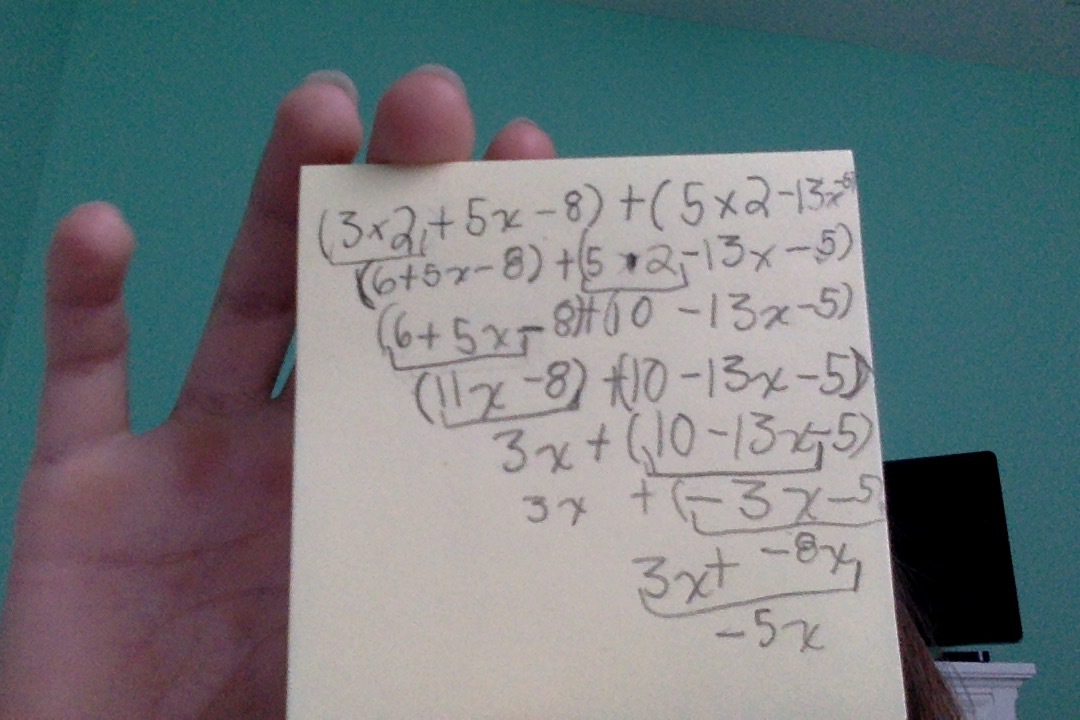 (3x2+5x-8)+(5x2-13x
(6+5x-8)+(5·2-13x-5)
(6+5x-8)+(10-13x-5)
(11x-8)+(10-13x-5)
3x+(10-13x-5)
3x+(-3x-5
3x+-8x
-5x